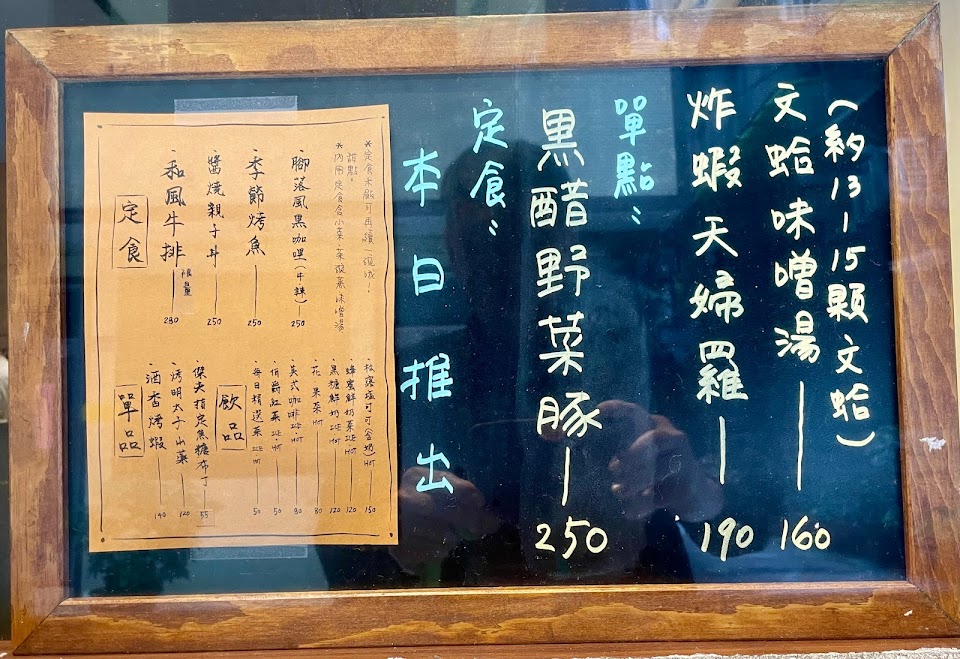 本日推出
定食:
黒醋野菜豚—250
單點:
炸蝦天婦羅—190
文蛤味噌湯—160
(約13-15顆文蛤)
定食
·和風牛排 限量—280
·醬燒親子丼—250
·季節烤魚—250
·腳落風黑咖哩(牛辣)—250
*內用定食含小菜、茶碗蒸、味噌湯、
甜點。
*定食米飯可再續一碗哦!
單品
·酒香烤蝦—140
·烤明太子山藥—120
·傑夫指定焦糖布丁—55
飲品
·每日精選茶 ICE·HOT—50
·伯爵紅茶 ICE·HOT—50
·美式咖啡 ICE·HOT—80
·花果茶 HOT—80
·黑糖鮮奶 ICE·HOT—120
·蜂蜜鮮奶茶 ICE·HOT—120
·松露塩可可(含奶) HOT—150